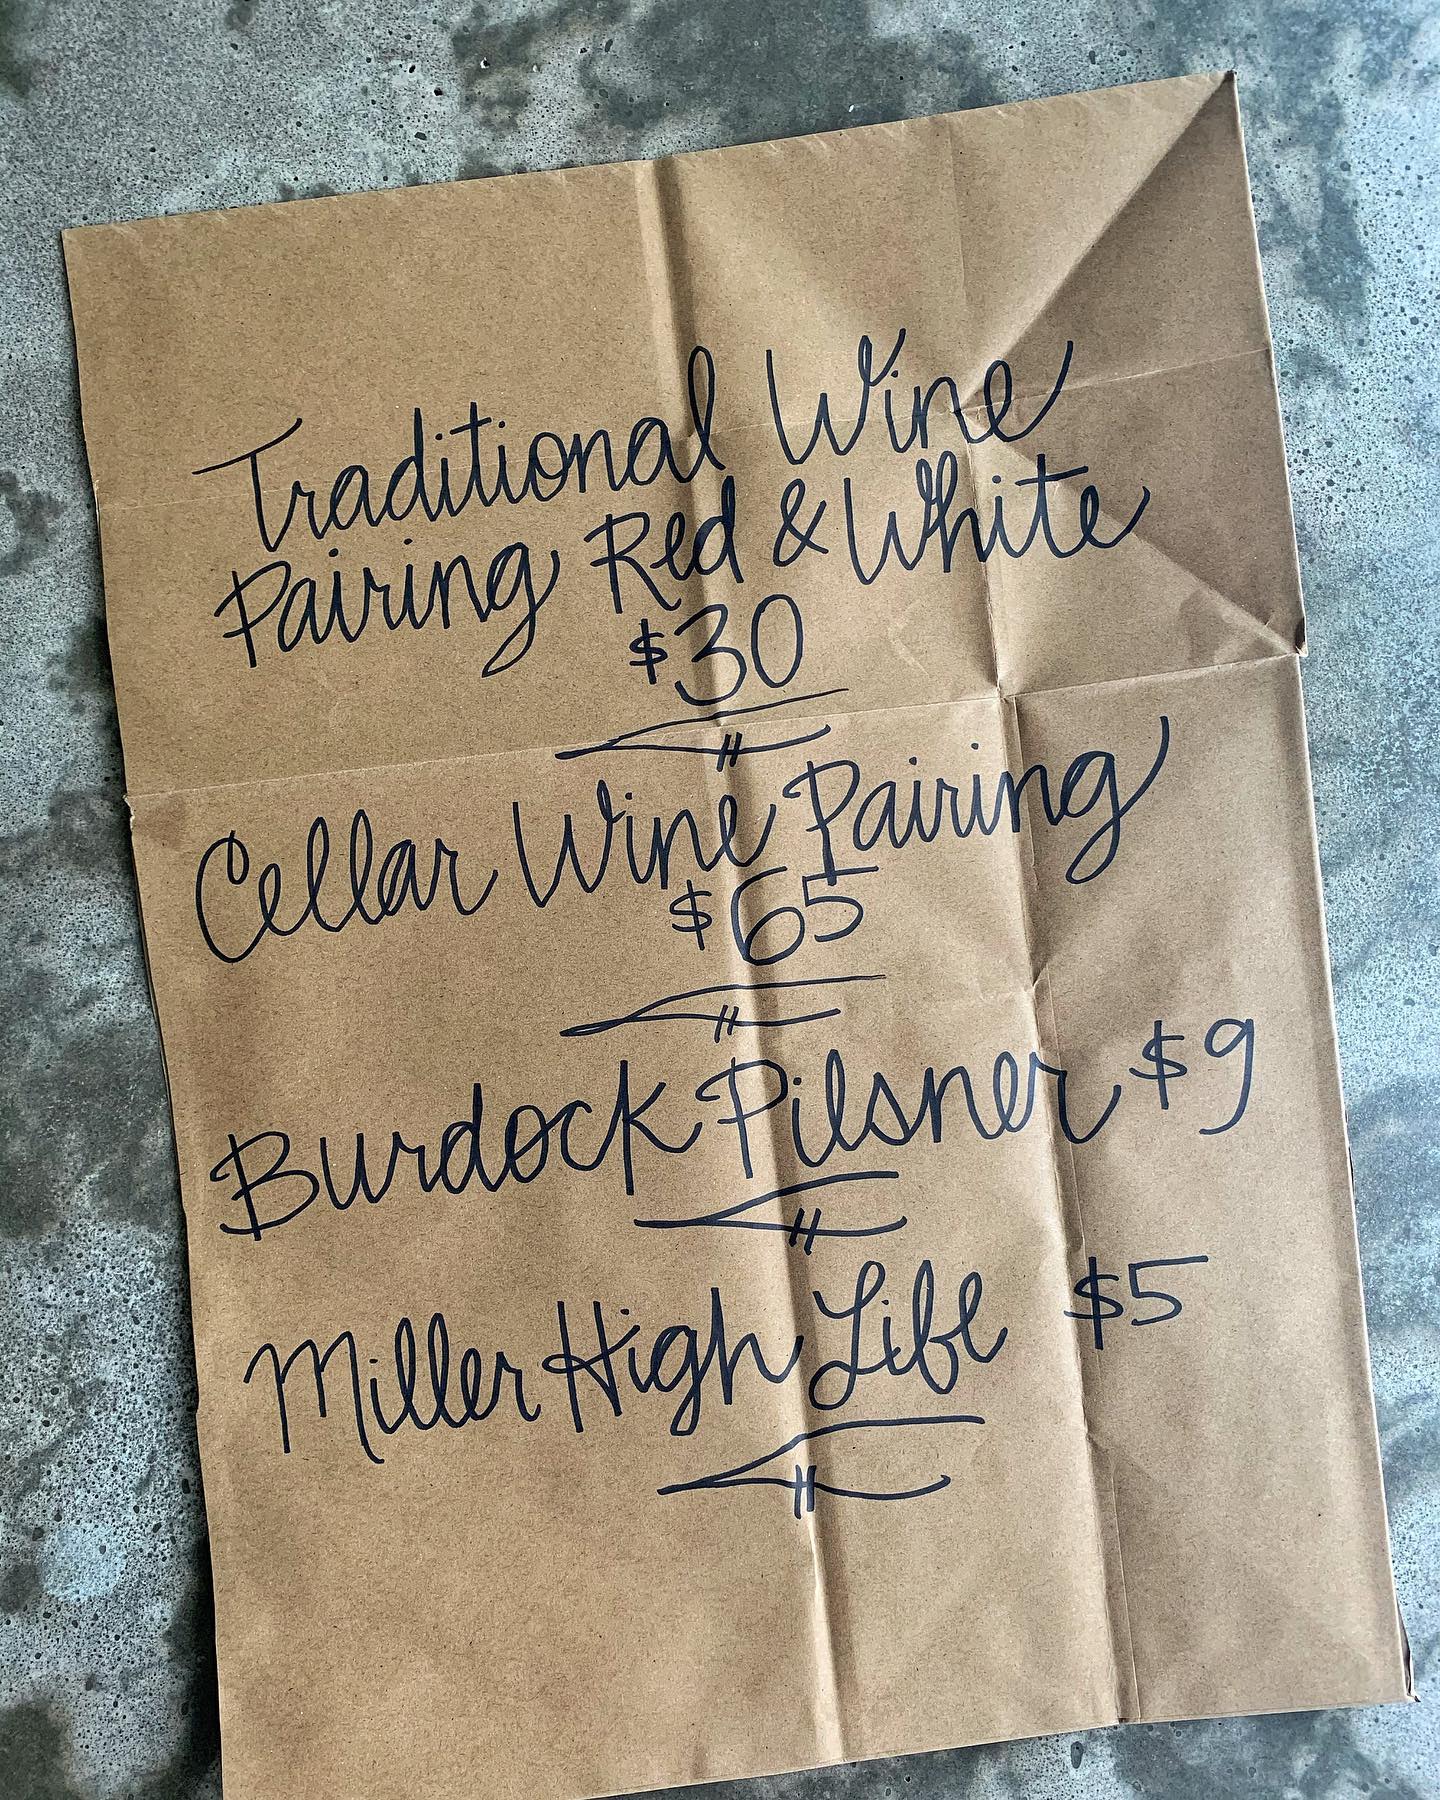 Traditional Wine
Pairing Red & White
$30
Cellar Wine Pairing
$65
Burdock Pilsner $9
Miller High Life $5